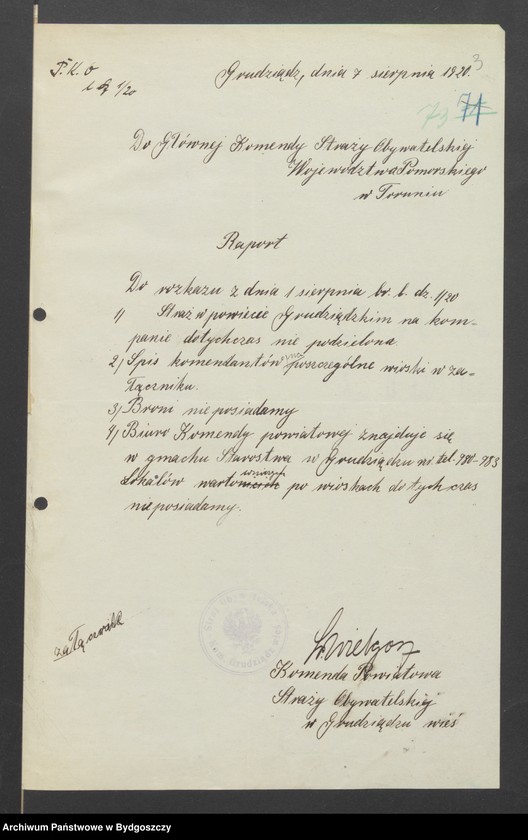 P. K. O
Grudziądz, dnia 7 sierpnia 1920.
3
73 74
Do Głównej Komendy Straży Obywatelskiej
Województwa Pomorskiego
w Toruniu
Raport
Do rozkazu z dnia 1 sierpnia br. l. dz. 1/20
1) Straż w powiecie Grudziądzkim na kom-
panie dotychczas nie podzielona
2) Spis komendantów poszczególne wioski w za-
łączniku.
3) Broni nie posiadamy
4) Biuro Komendy powiatowej znajduje się
w gmachu Starostwa w Grudziądzu nr tel. 980-983
Lokalów po wioskach dotychczas
nie posiadamy.
załącznik
Komenda Powiatowa
Straży Obywatelskiej
w Grudziądzu wieś
Archiwum Państwowe w Bydgoszczy